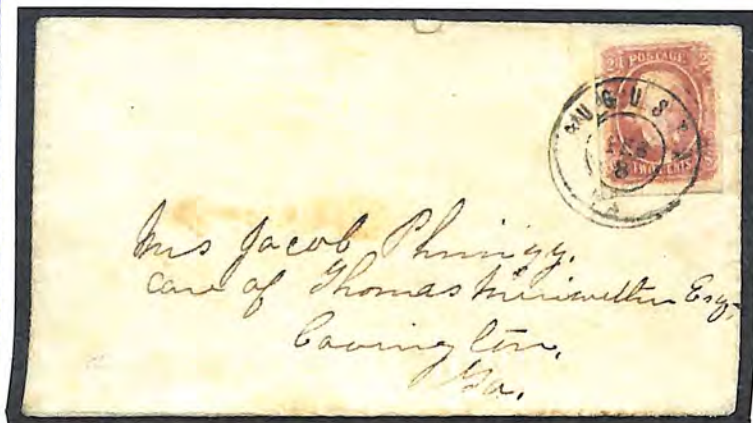 2 POSTAGE 2
AUGUSTA
FEB
8
GA
TWO CENTS
Mrs Jacob Phinizy.
Care of Thomas Meriwether Esqr
Covington,
Ga.